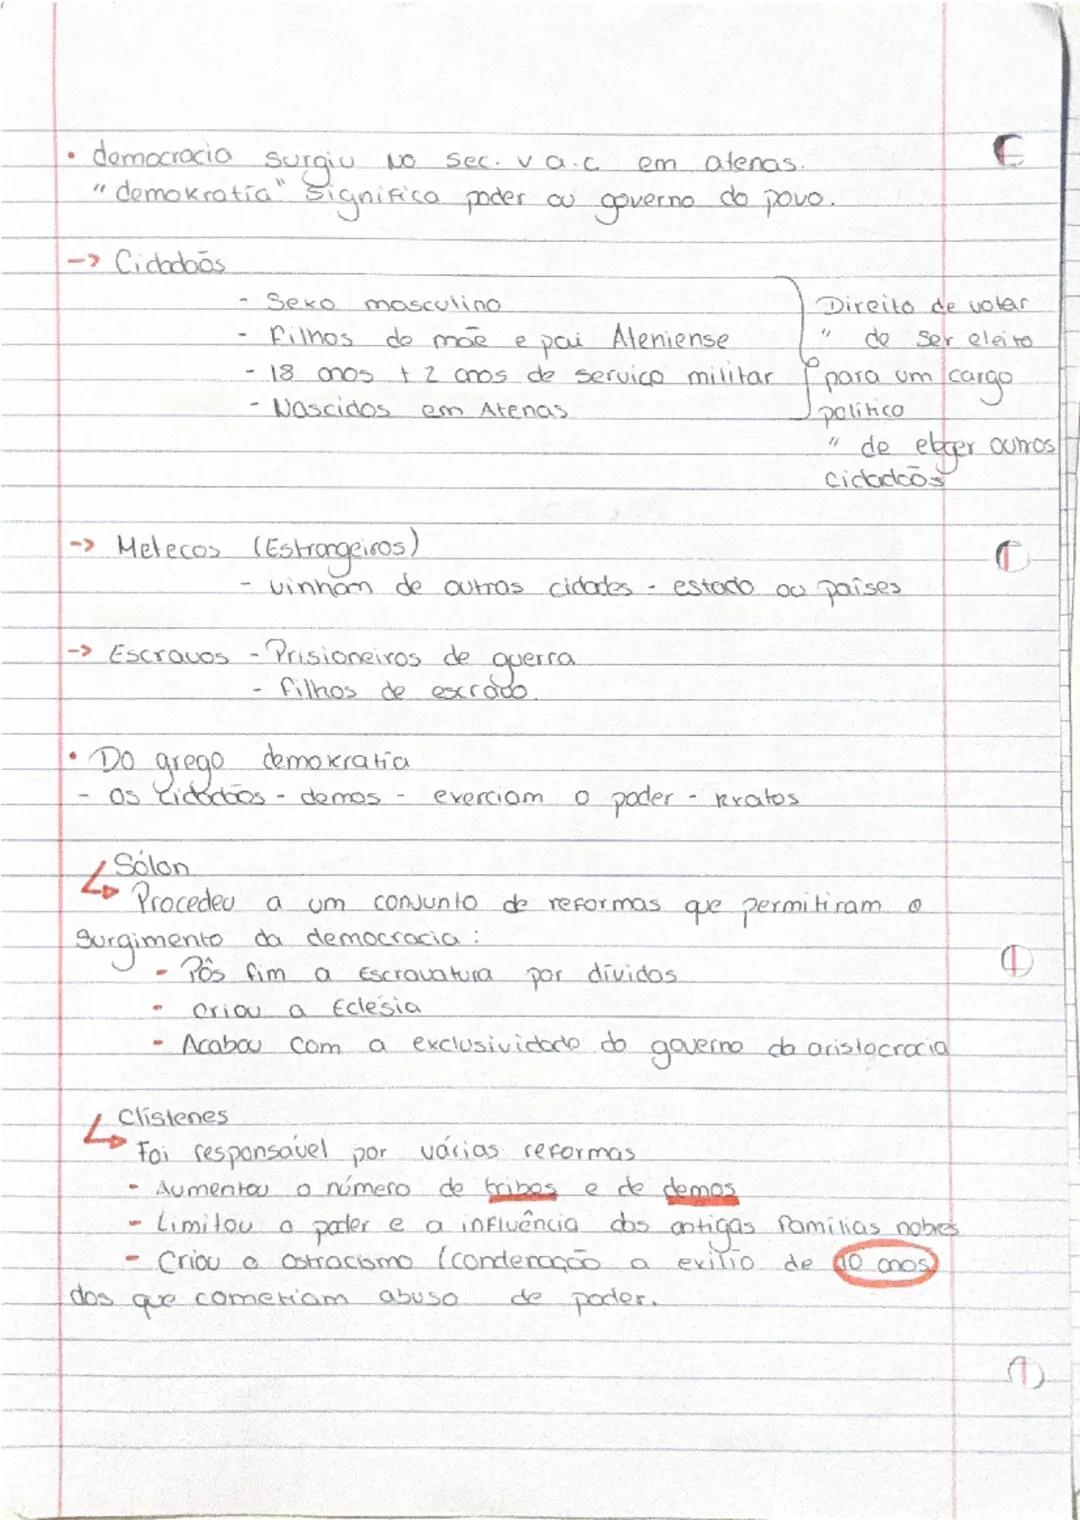 • democracia surgiu no sec. v a.c em atenas.
"demokratia" Significa poder ou governo do povo.
-> Cidadãos
- Sexo masculino
- Filhos de mãe e pai Ateniense
- 18 anos + 2 anos de serviço militar
- Nascidos em Atenas
Direito de votar
" de ser eleito
para um cargo
politico
" de eleger outros
cidadãos
-> Metecos (Estrangeiros)
- vinham de outras cidades - estado ou países
-> Escravos - Prisioneiros de guerra
- filhos de escravo.
• Do grego demokratia
- os cidadãos - demos - exerciam o poder - kratos
Sólon
Procedeu a um conjunto de reformas que permitiram o
Surgimento da democracia :
- Pôs fim a Escravatura por dívidas
- criou a Eclésia
- Acabou com a exclusividade do governo da aristocracia
Clistenes
Foi responsável por várias reformas
- Aumentou o número de tribos e de demos
- Limitou o poder e a influência das antigas famílias nobres
- Criou o ostracismo (condenação a exílio de 10 anos)
dos que cometiam abuso de poder.